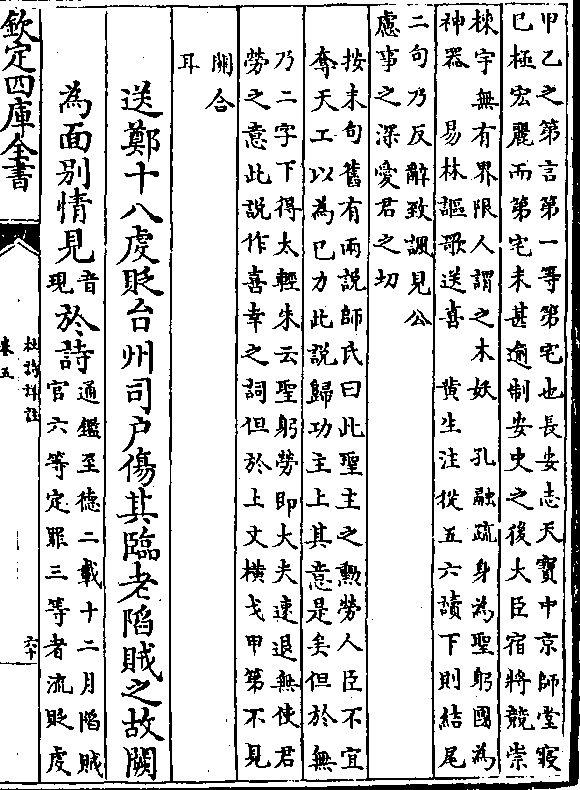 甲乙之第言第一等第宅也長安志天寶中京師堂寢
已極宏麗而第宅未甚逾制安史之後大臣宿將競崇
棟宇無有界限人謂之木妖　孔融疏身為聖躬國為
神器　易林謳歌送喜　黄生注從五六讀下則結尾
二句乃反辭致諷見公
慮事之深愛君之切
按末句舊有兩說師氏曰此聖主之勲勞人臣不宜
奪天工以為已力此說歸功主上其意是矣但於無
乃二字下得太輕朱云聖躬勞即大夫速退無使君
勞之意此說作喜幸之詞但於上文橫戈甲第不見
關合
耳
送鄭十八虔貶台州司户傷其臨老陷賊之故闕
為面别情見音現於詩通鑑至德二載十二月陷賊
官六等定罪三等者流貶虔
欽定四庫全書
杜詩詳註
卷五
六十